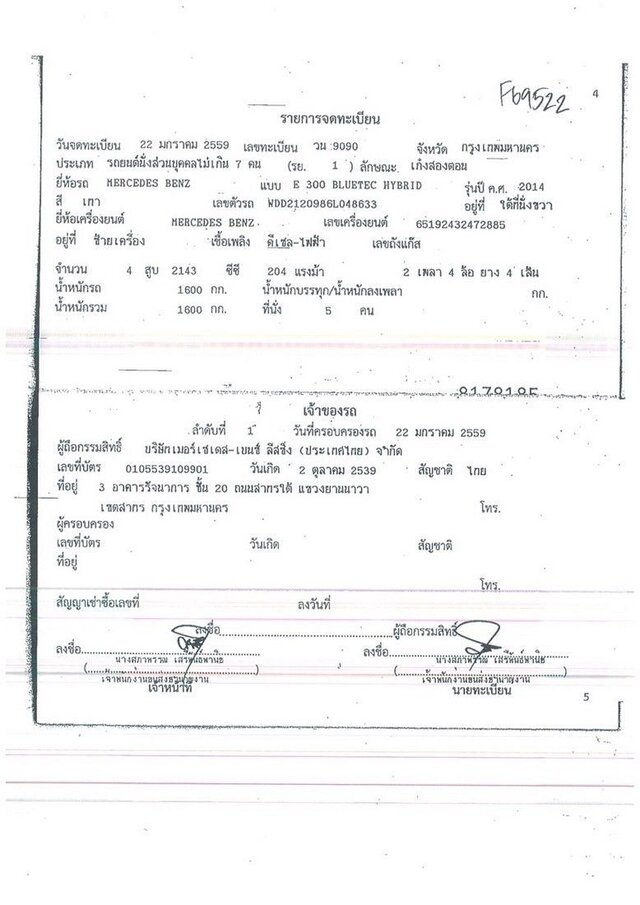 F69522
4
รายการจดทะเบียน
วันจดทะเบียน 22 มกราคม 2559 เลขทะเบียน วน 9090 จังหวัด กรุงเทพมหานคร
ประเภท รถยนต์นั่งส่วนบุคคลไม่เกิน 7 คน (รย. 1 ) ลักษณะ เก๋งสองตอน
ยี่ห้อรถ MERCEDES BENZ แบบ E 300 BLUETEC HYBRID รุ่นปี ค.ศ. 2014
สี เทา เลขตัวรถ WDD2120986L048633 อยู่ที่ ใต้ที่นั่งขวา
ยี่ห้อเครื่องยนต์ MERCEDES BENZ เลขเครื่องยนต์ 65192432472885
อยู่ที่ ซ้ายเครื่อง เชื้อเพลิง ดีเซล-ไฟฟ้า เลขถังแก๊ส
จำนวน 4 สูบ 2143 ซีซี 204 แรงม้า 2 เพลา 4 ล้อ ยาง 4 เส้น
น้ำหนักรถ 1600 กก. น้ำหนักบรรทุก/น้ำหนักลงเพลา กก.
น้ำหนักรวม 1600 กก. ที่นั่ง 5 คน
เจ้าของรถ
ลำดับที่ 1 วันที่ครอบครองรถ 22 มกราคม 2559
ผู้ถือกรรมสิทธิ์ บริษัทเมอร์เซเดส-เบนซ์ ลีสซิ่ง (ประเทศไทย) จำกัด
เลขที่บัตร 0105539109901 วันเกิด 2 ตุลาคม 2539 สัญชาติ ไทย
ที่อยู่ 3 อาคารรัจนาการ ชั้น 20 ถนนสาทรใต้ แขวงยานนาวา
เขตสาทร กรุงเทพมหานคร โทร.
ผู้ครอบครอง
เลขที่บัตร วันเกิด สัญชาติ
ที่อยู่
โทร.
สัญญาเช่าซื้อเลขที่ ลงวันที่
ลงชื่อ ผู้ถือกรรมสิทธิ์
ลงชื่อ ลงชื่อ
นางสภาพรรณ เสรีพันธ์พานิช นางสภาพรรณ เสรีพันธ์พานิช
เจ้าพนักงานขนส่งชำนาญงาน เจ้าพนักงานขนส่งชำนาญงาน
เจ้าหน้าที่ นายทะเบียน
5